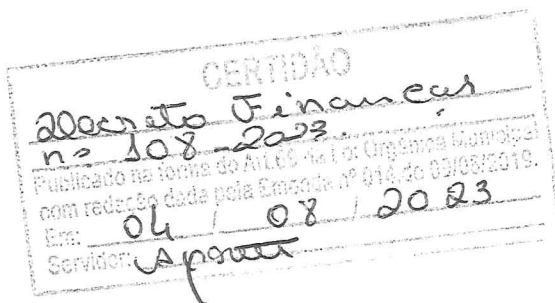 CERTIDÃO
Decreto Finanças
nº 108-2023.
Publicado na forma do Art. 69 da Lei Orgânica Municipal
com redação dada pela Emenda nº 014, de 09/08/2019.
Em: 04 / 08 / 2023
Servidor: